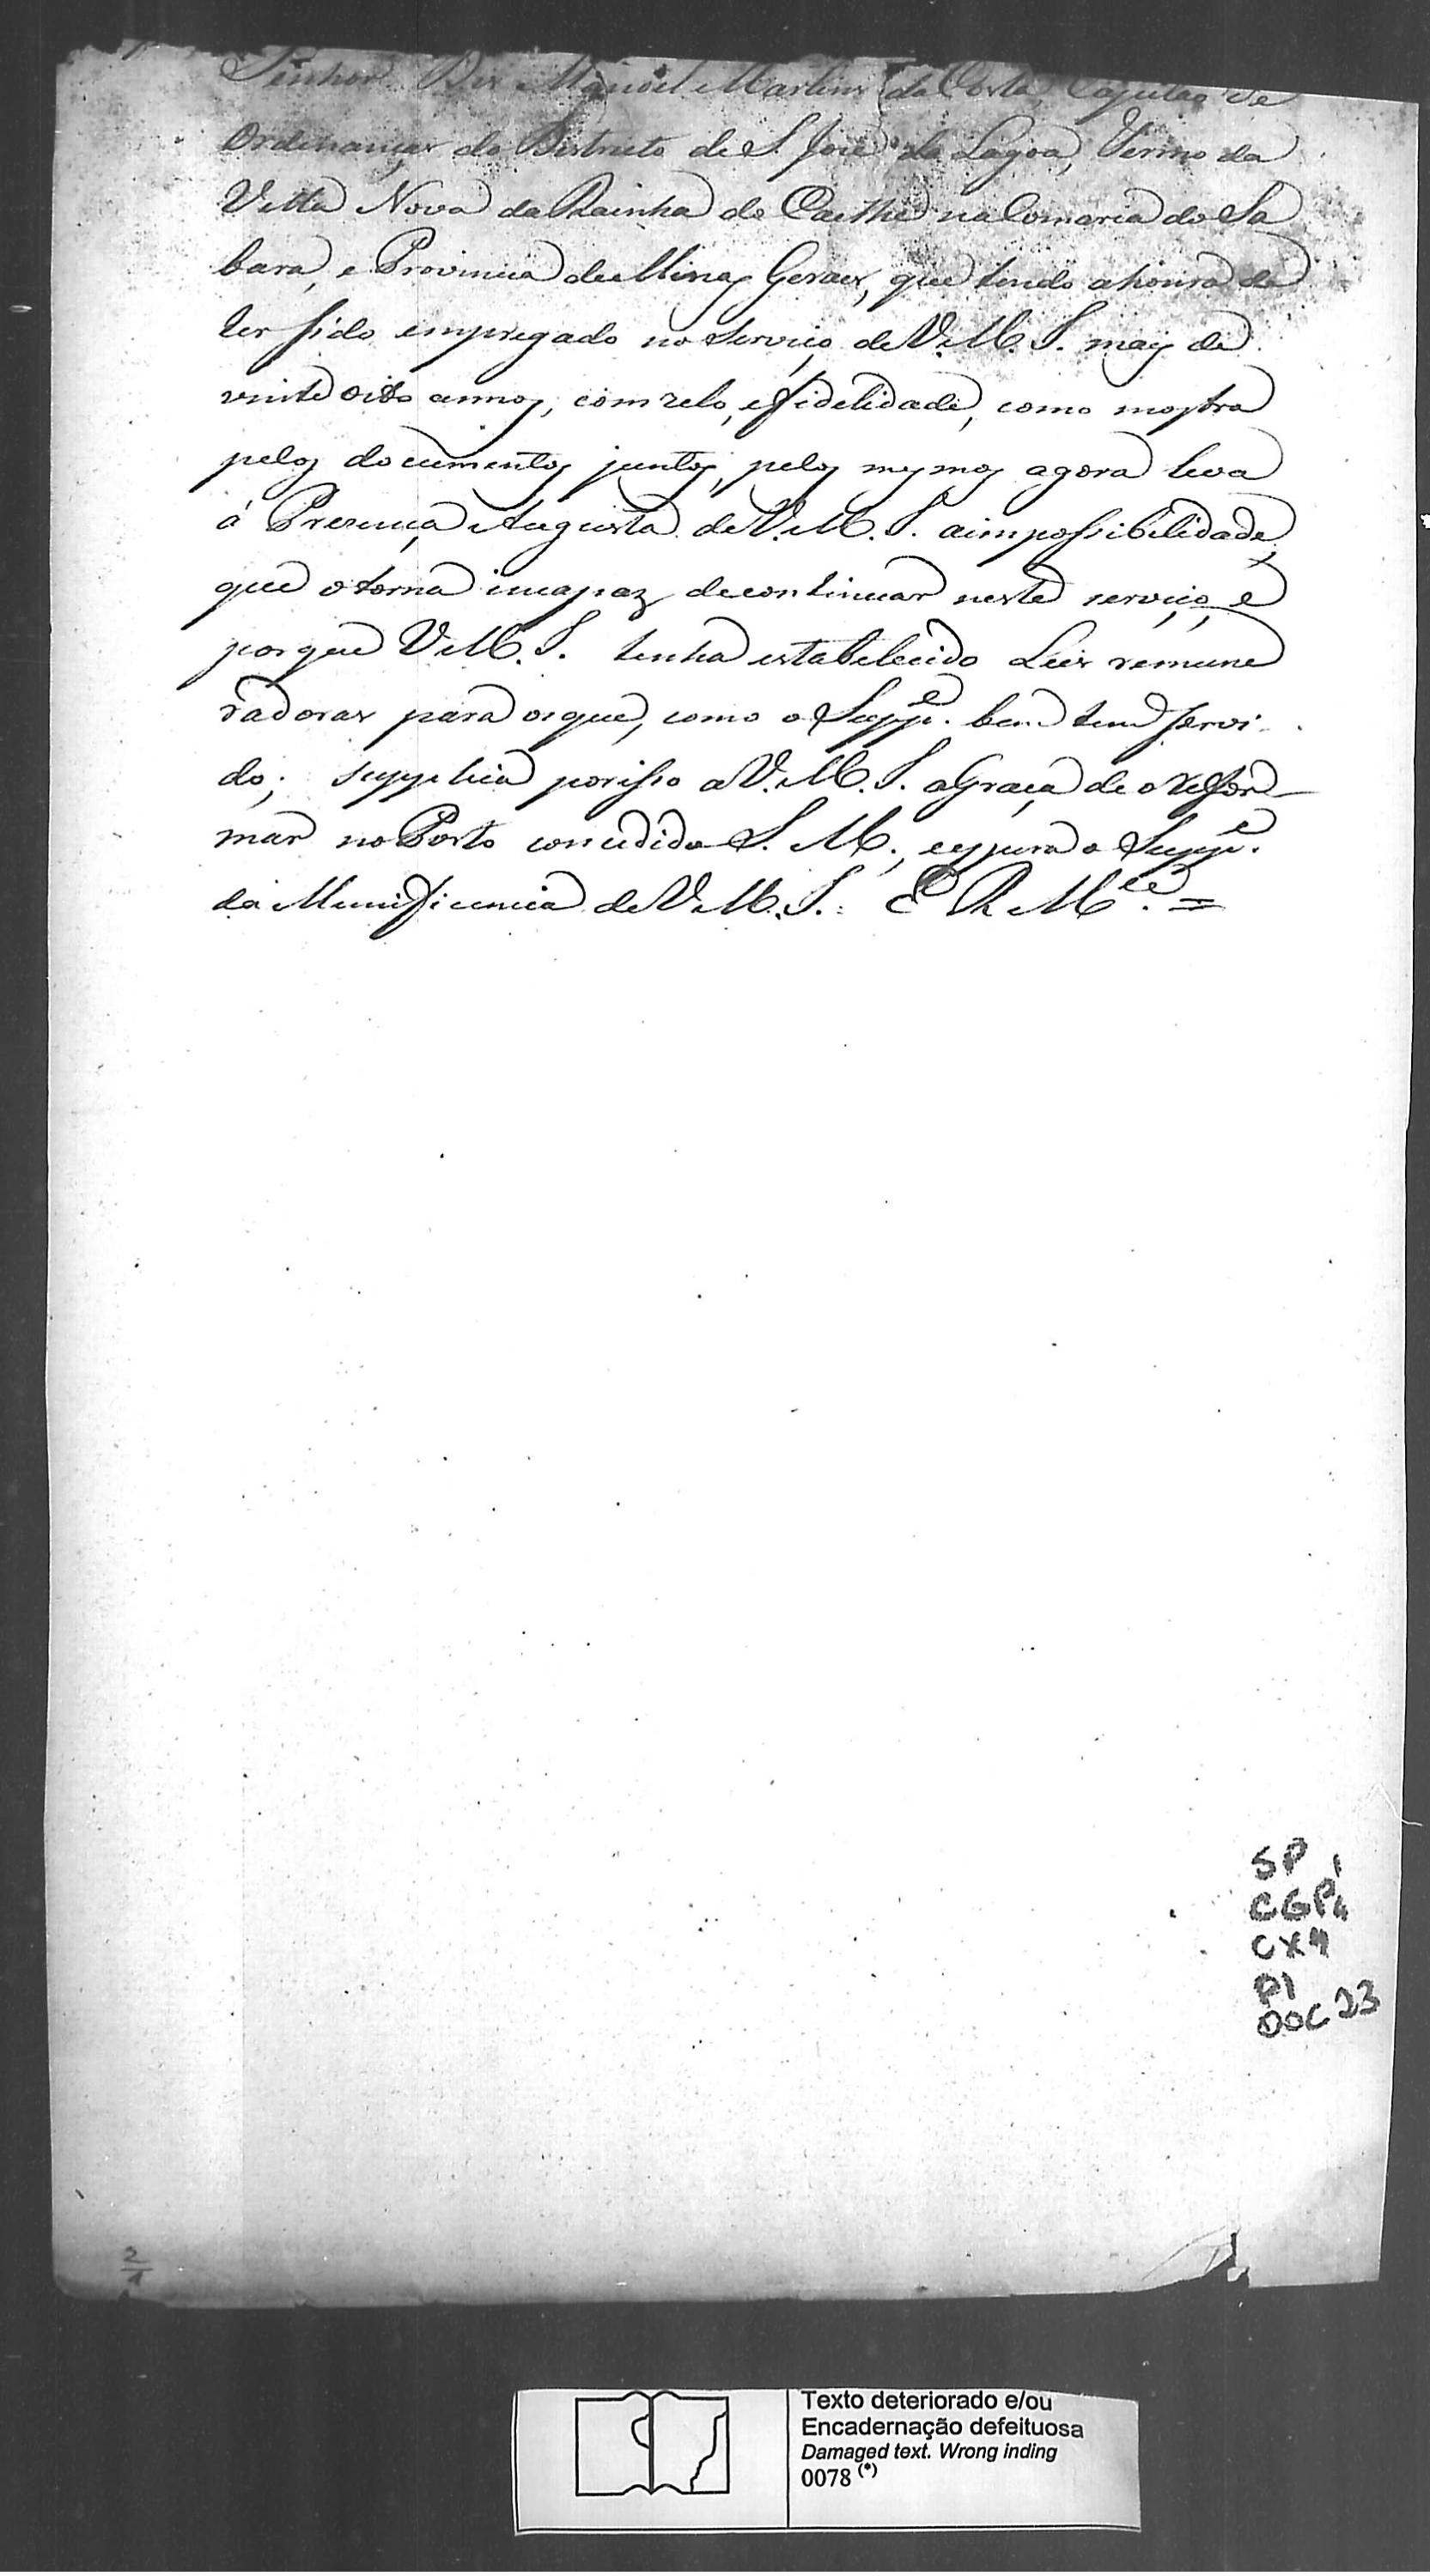 Senhor. Diz Manoel Martins da Costa, Capitão de
Ordenanças do Districto de S. José da Lagoa, Termo da
Villa Nova da Rainha do Caethé na Comarca do Sa
bara, e Provincia de Minas Geraes, que tendo a honra de
ter sido empregado no Serviço de V. M. S. mais de
vinte oito annos, com zelo, e fidelidade, como mostra
pelos documentos juntos, pelos mesmos agora leva
á Presença Augusta de V. M. S. a impossibilidade,
que o torna incapaz de continuar neste serviço, e
porque V. M. S. tenha estabelecido Leis remune
radoras para os que, como o Supp.e bem tem servi
do; supplica por isso a V. M. S. a Graça de o refor-
mar no Posto concedido S. M., espera o Supp.e
da Munificencia de V. M. S. E R M.ce =
SP
CGP4
CX4
P1
DOC 23
2/1
Texto deteriorado e/ou
Encadernação defeituosa
Damaged text. Wrong inding
0078 (*)